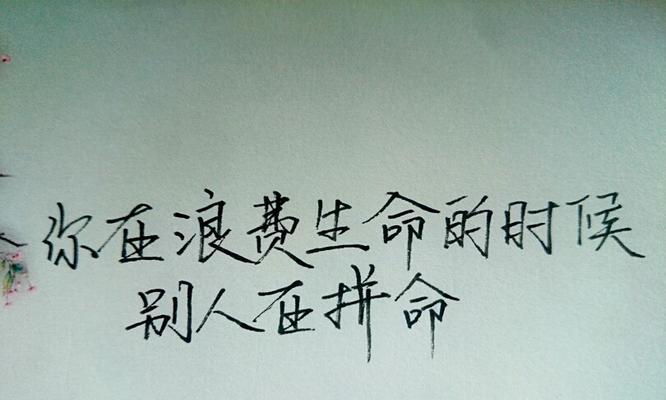 你在浪费生命的时候
别人在拼命